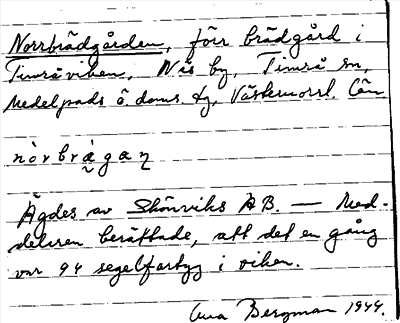 Norrbrädgården, förr brädgård i
Timråviken, Näs by, Timrå sn,
Medelpads ö. doms. tg, Västernorrl. Län
nòrbrà̰gaɳ
Ägdes av Skönviks AB. — Med-
delaren berättade, att det en gång
var 94 segelfartyg i viken.
Bergman 1944.